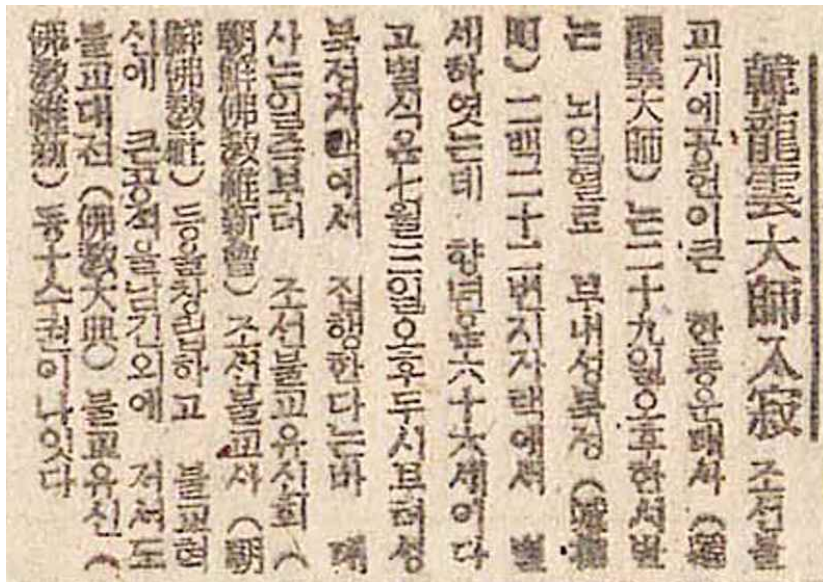 韓龍雲大師入寂 조선불
교게에공헌이큰 한룡운대사(韓
龍雲大師)는二十九일오후한시반
는 뇌일혈로 부내성북정(城北
町)二백二十二번지자택에서 별
세하엿는데 향년은六十六세이다
고별식은七월三일오후두시부터성
북정자택에서 집행한다는바 대
사는일즉부터 조선불교유신회(
朝鮮佛敎維新會)조선불교사(朝
鮮佛敎社)등을창립하고 불교혁
신에 큰공적을남긴외에 저서도
불교대전(佛敎大典)불교유신(
佛敎維新)등十수권이나잇다